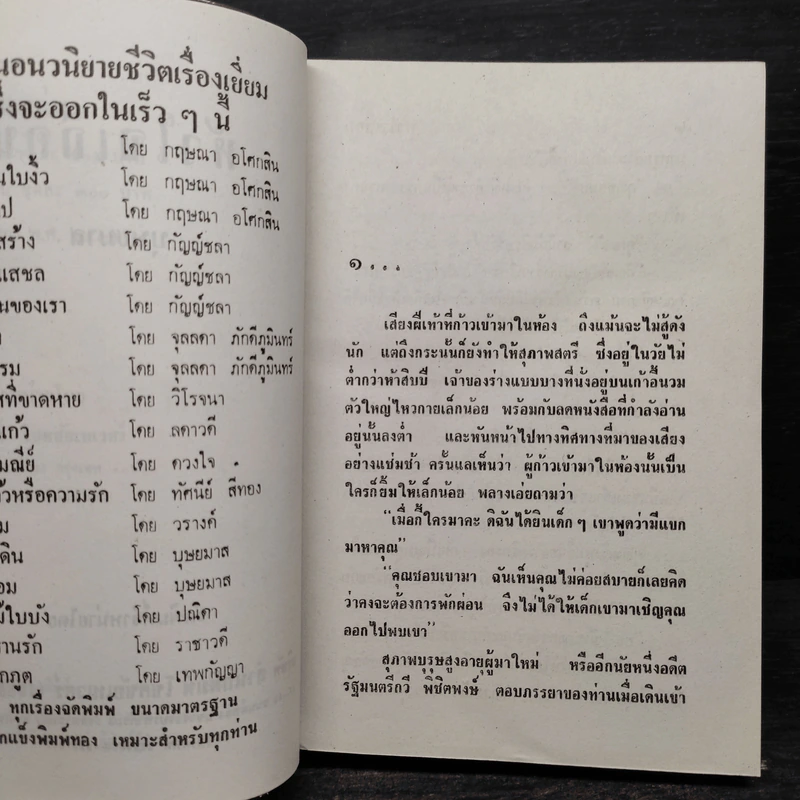 นอนวนิยายชีวิตเรื่องเยี่ยม
ซึ่งจะออกในเร็ว ๆ นี้
โดย กฤษณา อโศกสิน
นใบงิ้ว โดย กฤษณา อโศกสิน
ป โดย กฤษณา อโศกสิน
สร้าง โดย กัญญ์ชลา
แสชล โดย กัญญ์ชลา
นของเรา โดย กัญญ์ชลา
โดย จุลลดา ภักดีภูมินทร์
รม โดย จุลลดา ภักดีภูมินทร์
สที่ขาดหาย โดย วิโรจนา
แก้ว โดย ลดาวดี
มณีย์ โดย ดวงใจ
้วหรือความรัก โดย ทัศนีย์ สีทอง
ม โดย วรางค์
ดิน โดย บุษยมาส
อม โดย บุษยมาส
ม้ใบบัง โดย ปณิตา
านรัก โดย ราชาวดี
กภูต โดย เทพกัญญา
ทุกเรื่องจัดพิมพ์ ขนาดมาตรฐาน
กแข็งพิมพ์ทอง เหมาะสำหรับทุกท่าน
๑...
เสียงฝีเท้าที่ก้าวเข้ามาในห้อง ถึงแม้นจะไม่สู้ดัง
นัก แต่ถึงกระนั้นก็ยังทำให้สุภาพสตรี ซึ่งอยู่ในวัยไม่
ต่ำกว่าห้าสิบปี เจ้าของร่างแบบบางที่นั่งอยู่บนเก้าอี้นวม
ตัวใหญ่ไหวกายเล็กน้อย พร้อมกับลดหนังสือที่กำลังอ่าน
อยู่นั้นลงต่ำ และหันหน้าไปทางทิศทางที่มาของเสียง
อย่างแช่มช้า ครั้นแลเห็นว่า ผู้ก้าวเข้ามาในห้องนั้นเป็น
ใครก็ยิ้มให้เล็กน้อย พลางเอ่ยถามว่า
“เมื่อกี้ใครมาคะ ดิฉันได้ยินเด็ก ๆ เขาพูดว่ามีแขก
มาหาคุณ”
“คุณชอบเขามา ฉันเห็นคุณไม่ค่อยสบายก็เลยคิด
ว่าคงจะต้องการพักผ่อน จึงไม่ได้ให้เด็กเขามาเชิญคุณ
ออกไปพบเขา”
สุภาพบุรุษสูงอายุผู้มาใหม่ หรืออีกนัยหนึ่งอดีต
รัฐมนตรีกวี พิชิตพงษ์ ตอบภรรยาของท่านเมื่อเดินเข้า